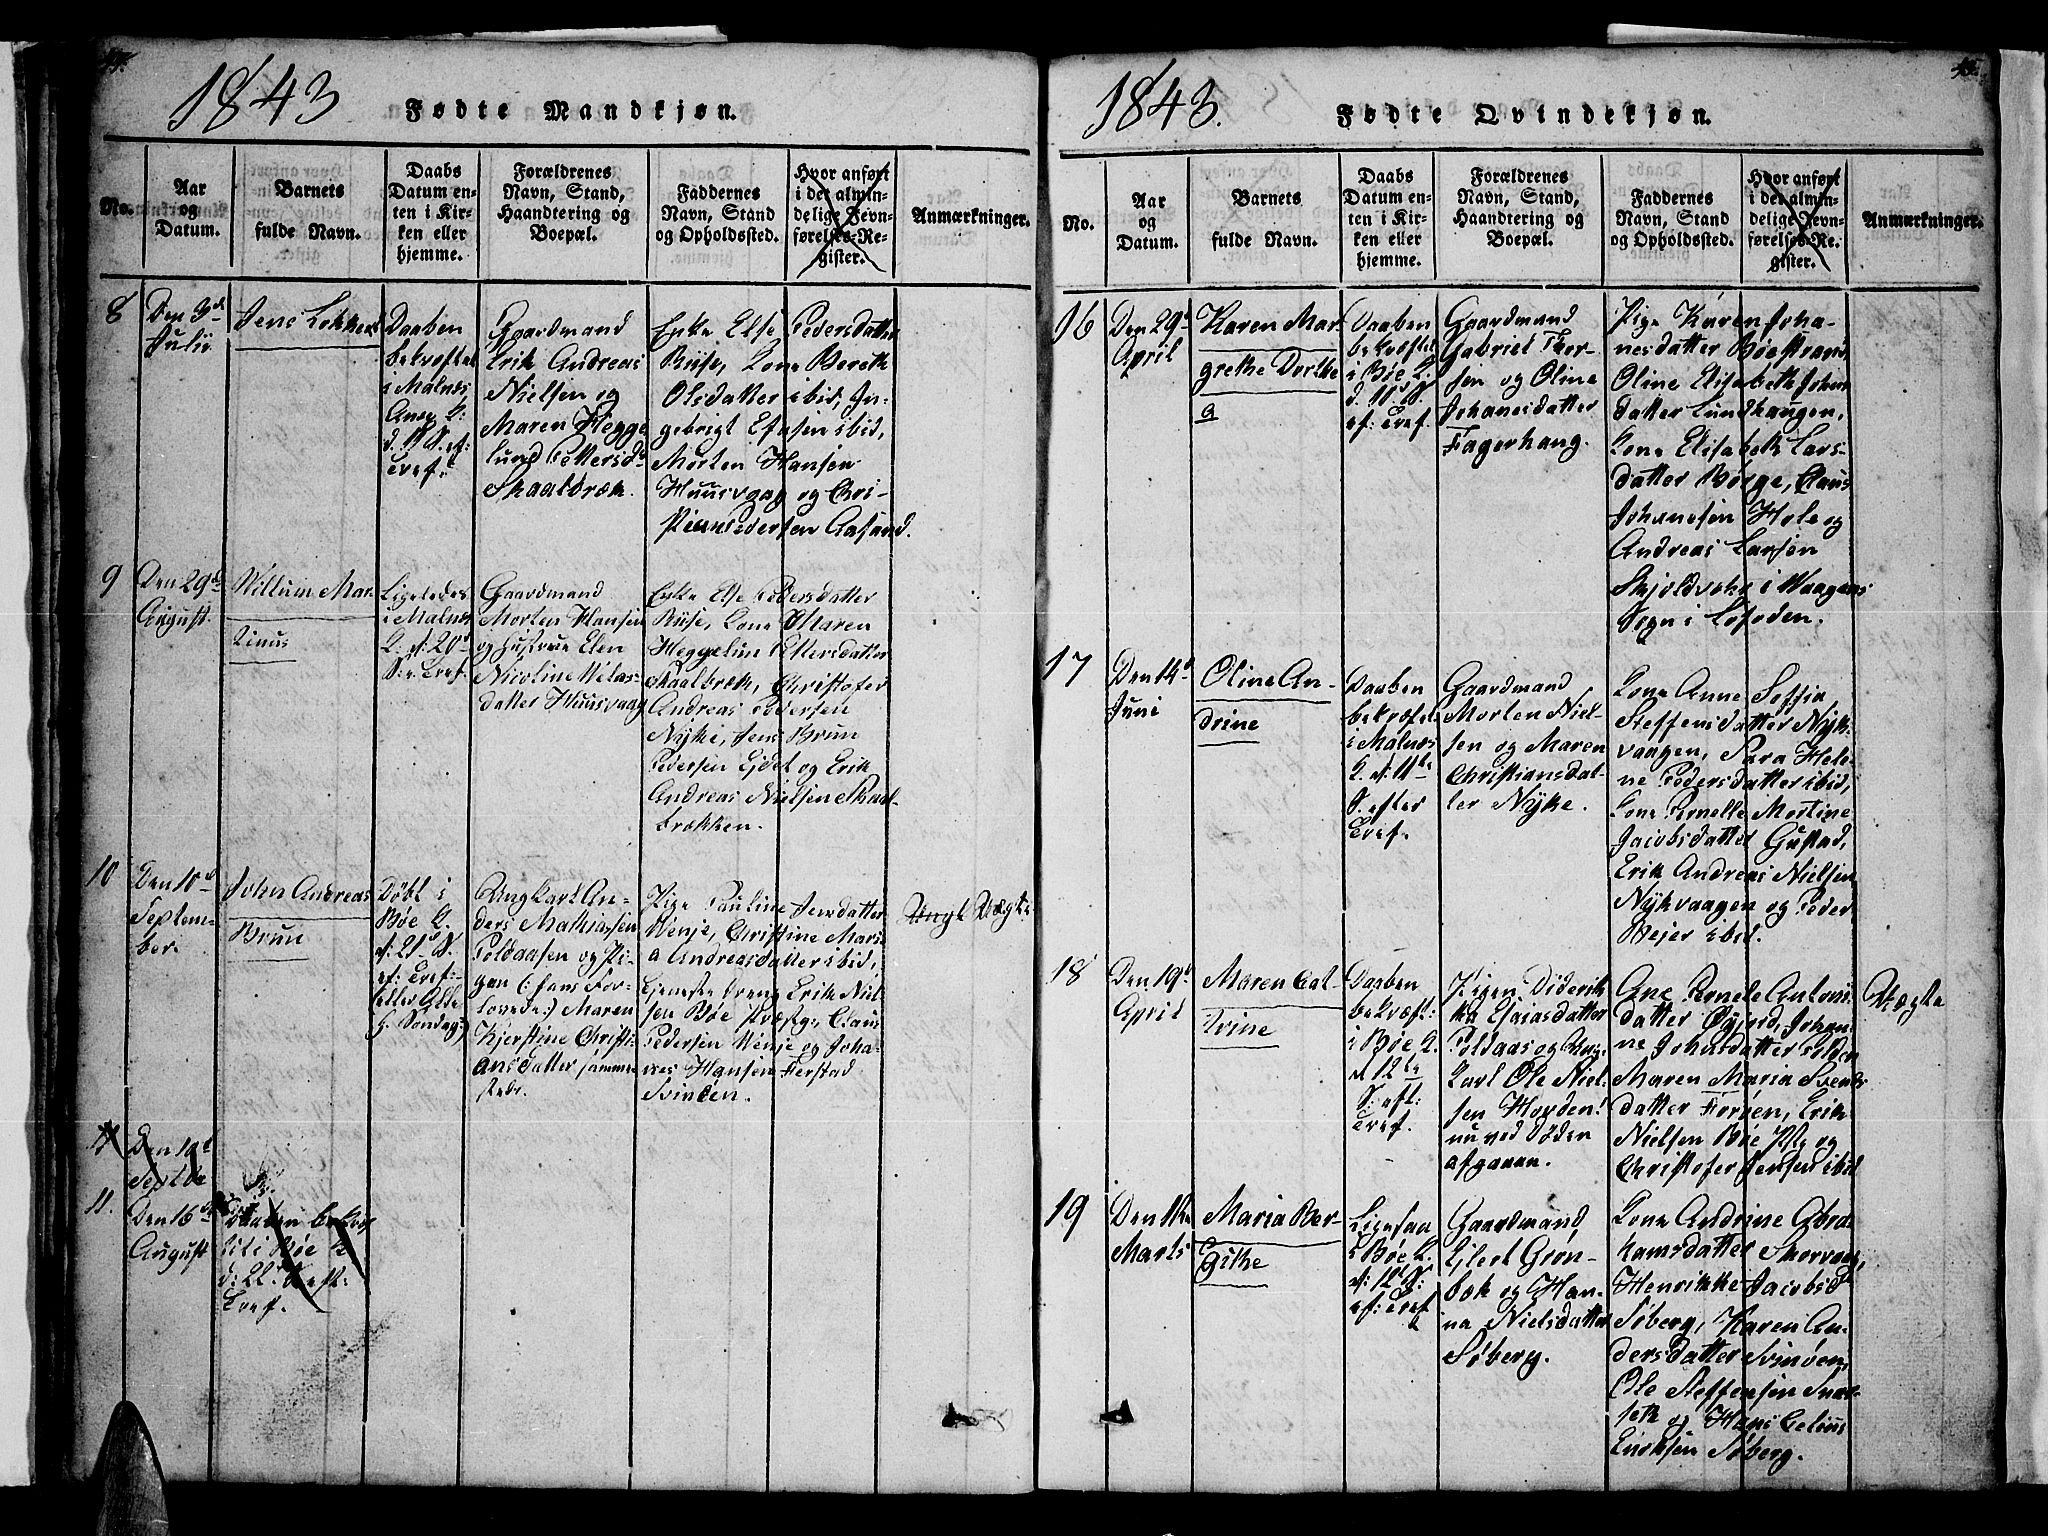 1843 Fødte Mandkjøn.
No.
Aar
og
Datum.
Barnets
fulde Navn.
Daabs
Datum en-
ten i Kir-
ken eller
hjemme.
Forældrenes
Navn, Stand,
Haandtering og
Boepæl.
Faddernes
Navn, Stand
og Opholdssted.
Hvor anført
i det almin-
delige Jevn-
førelses-Re-
gister.
Anmærkninger.
8
Den 3d
Julii
Jens Lokkert
Daaben
bekræftet
i Malnes
K:
d.
ef:
Tref.
Gaardmand
Erik Andreas
Nielsen og
Maren Hegge
lund Pettersd.
Skaalbræk.
Enke Else Pedersdatter
Riise, Kone Bereth
Olsdatter ibid, In-
gebrigt Esasen ibid,
Morten Hansen
Huusvaag og Chri-
stian Pedersen Aasand.
9
Den 29de
August.
Willum Mar-
tinus
Ligeledes
i Malnes
K. d: 20d
S. e. Tref.
Gaardmand
Morten Hansen
og Hustrue Elen
Nicoline
datter Huusvaag
Enke Else Pedersdatter
Riise, Kone Maren
Heggelun Pettersdatter
Skaalbræk, Christofer
Andreas Pedersen
Nÿke, Jens Brun
Pedersen Ejdet og Erik
Andreas Nielsen Skaal-
brækken.
10
Den 10d
Septem-
ber.
John Andreas
Brun
Døbt i
Bøe K.
d: 21d S.
ef: Tref:
(eller Alle
H. Søndag)
Ungkarl An-
ders Mathiassen
Poldaasen og Pi-
gen (: hans For-
lovede:) Maren
Kjerstine Christi-
ansdatter samme-
steds.
Pige Pauline Jensdatter
Wenje, Christine Mari-
a Andreasdatter ibid,
Tjeneste Dreng Erik Niel-
sen Bøe Præstg:, Claus
Pedersen Wenje og Joha-
nes Hansen Ferstad
Svinøen.
Uægte
11
Den 10d
Septbr
11.
Den 16d
August
Daaben bekræf
tet i Bøe K
d: 22d S. eft:
Tref.
1843. Fødte Qvindekjøn.
No.
Aar
og
Datum.
Barnets
fulde Navn.
Daabs
Datum en-
ten i Kir-
ken eller
hjemme.
Forældrenes
Navn, Stand,
Haandtering og
Boepæl.
Faddernes
Navn, Stand
og Opholdssted.
Hvor anført
i det almin-
delige Jevn-
førelses-Re-
gister.
Anmærkninger.
16
Den 29d
April
Karen Mar-
grethe Dorthe
a
Daaben
bekræftet
i Bøe K.
d. 11d S.
ef: Tref.
Gaardmand
Gabriel Thor-
sen og Oline
Johanesdatter
Fagerhaug.
Pige Karen Joha-
nesdatter Bøestrand
Oline Elisabeth Johan
datter Lundhaugen,
Kone Elisabeth Lars-
datter Børge, Claus
Johanesen Hole og
Andreas Larsen
Skjoldvohr i Waagens
Sogn i Lofoden.
17
Den 14d
Juni
Oline An-
drine
Daaben
bekræftet
i Malnes
K. d: 11te
S. efter
Tref.
Gaardmand
Morten Niel-
sen og Maren
Christiansdat-
ter Nÿke.
Kone Anne Soffia
Steffensdatter Nÿk-
vaagen, Sara Hele-
ne Pedersdatter ibid,
Kone Pernelle Mortine
Jacobsdatter Gustad,
Erik Andreas Nielsen
Nÿkvaagen og Peder
Bejer ibid.
18
Den 19d
April
Maren Cat-
trine
Daaben
bekræft:
i Bøe K.
d 12te
S. eft:
Tref.
Pigen Diderik
ka Esaiasdatter
Poldaas og Ung-
karl Ole Niel-
sen Hovden!
nu ved Døden
afgaaen.
Ane Pernele Antonis
datter Øyjord, Johan-
ne Johnsdatter
Maren Maria Svends
datter Førøen, Erik
Nielsen Bøe Pstg og
Christofer Jensen ibid
Uægte
19
Den 11te
Marts
Maria Ber-
githe
Ligesaa
i Bøe K.
d: 12d S:
ef: Tref
Gaardmand
Ejlert Grøn-
bæk og Han-
na Nielsdatter
Søberg.
Kone Andrine Abra
hamsdatter Skorvaag,
Henrikke Jacobsd
Søberg, Karen An-
dersdatter Svinøen,
Ole Steffensen Snar-
seth og Hans Celius
Eriksen Søberg.